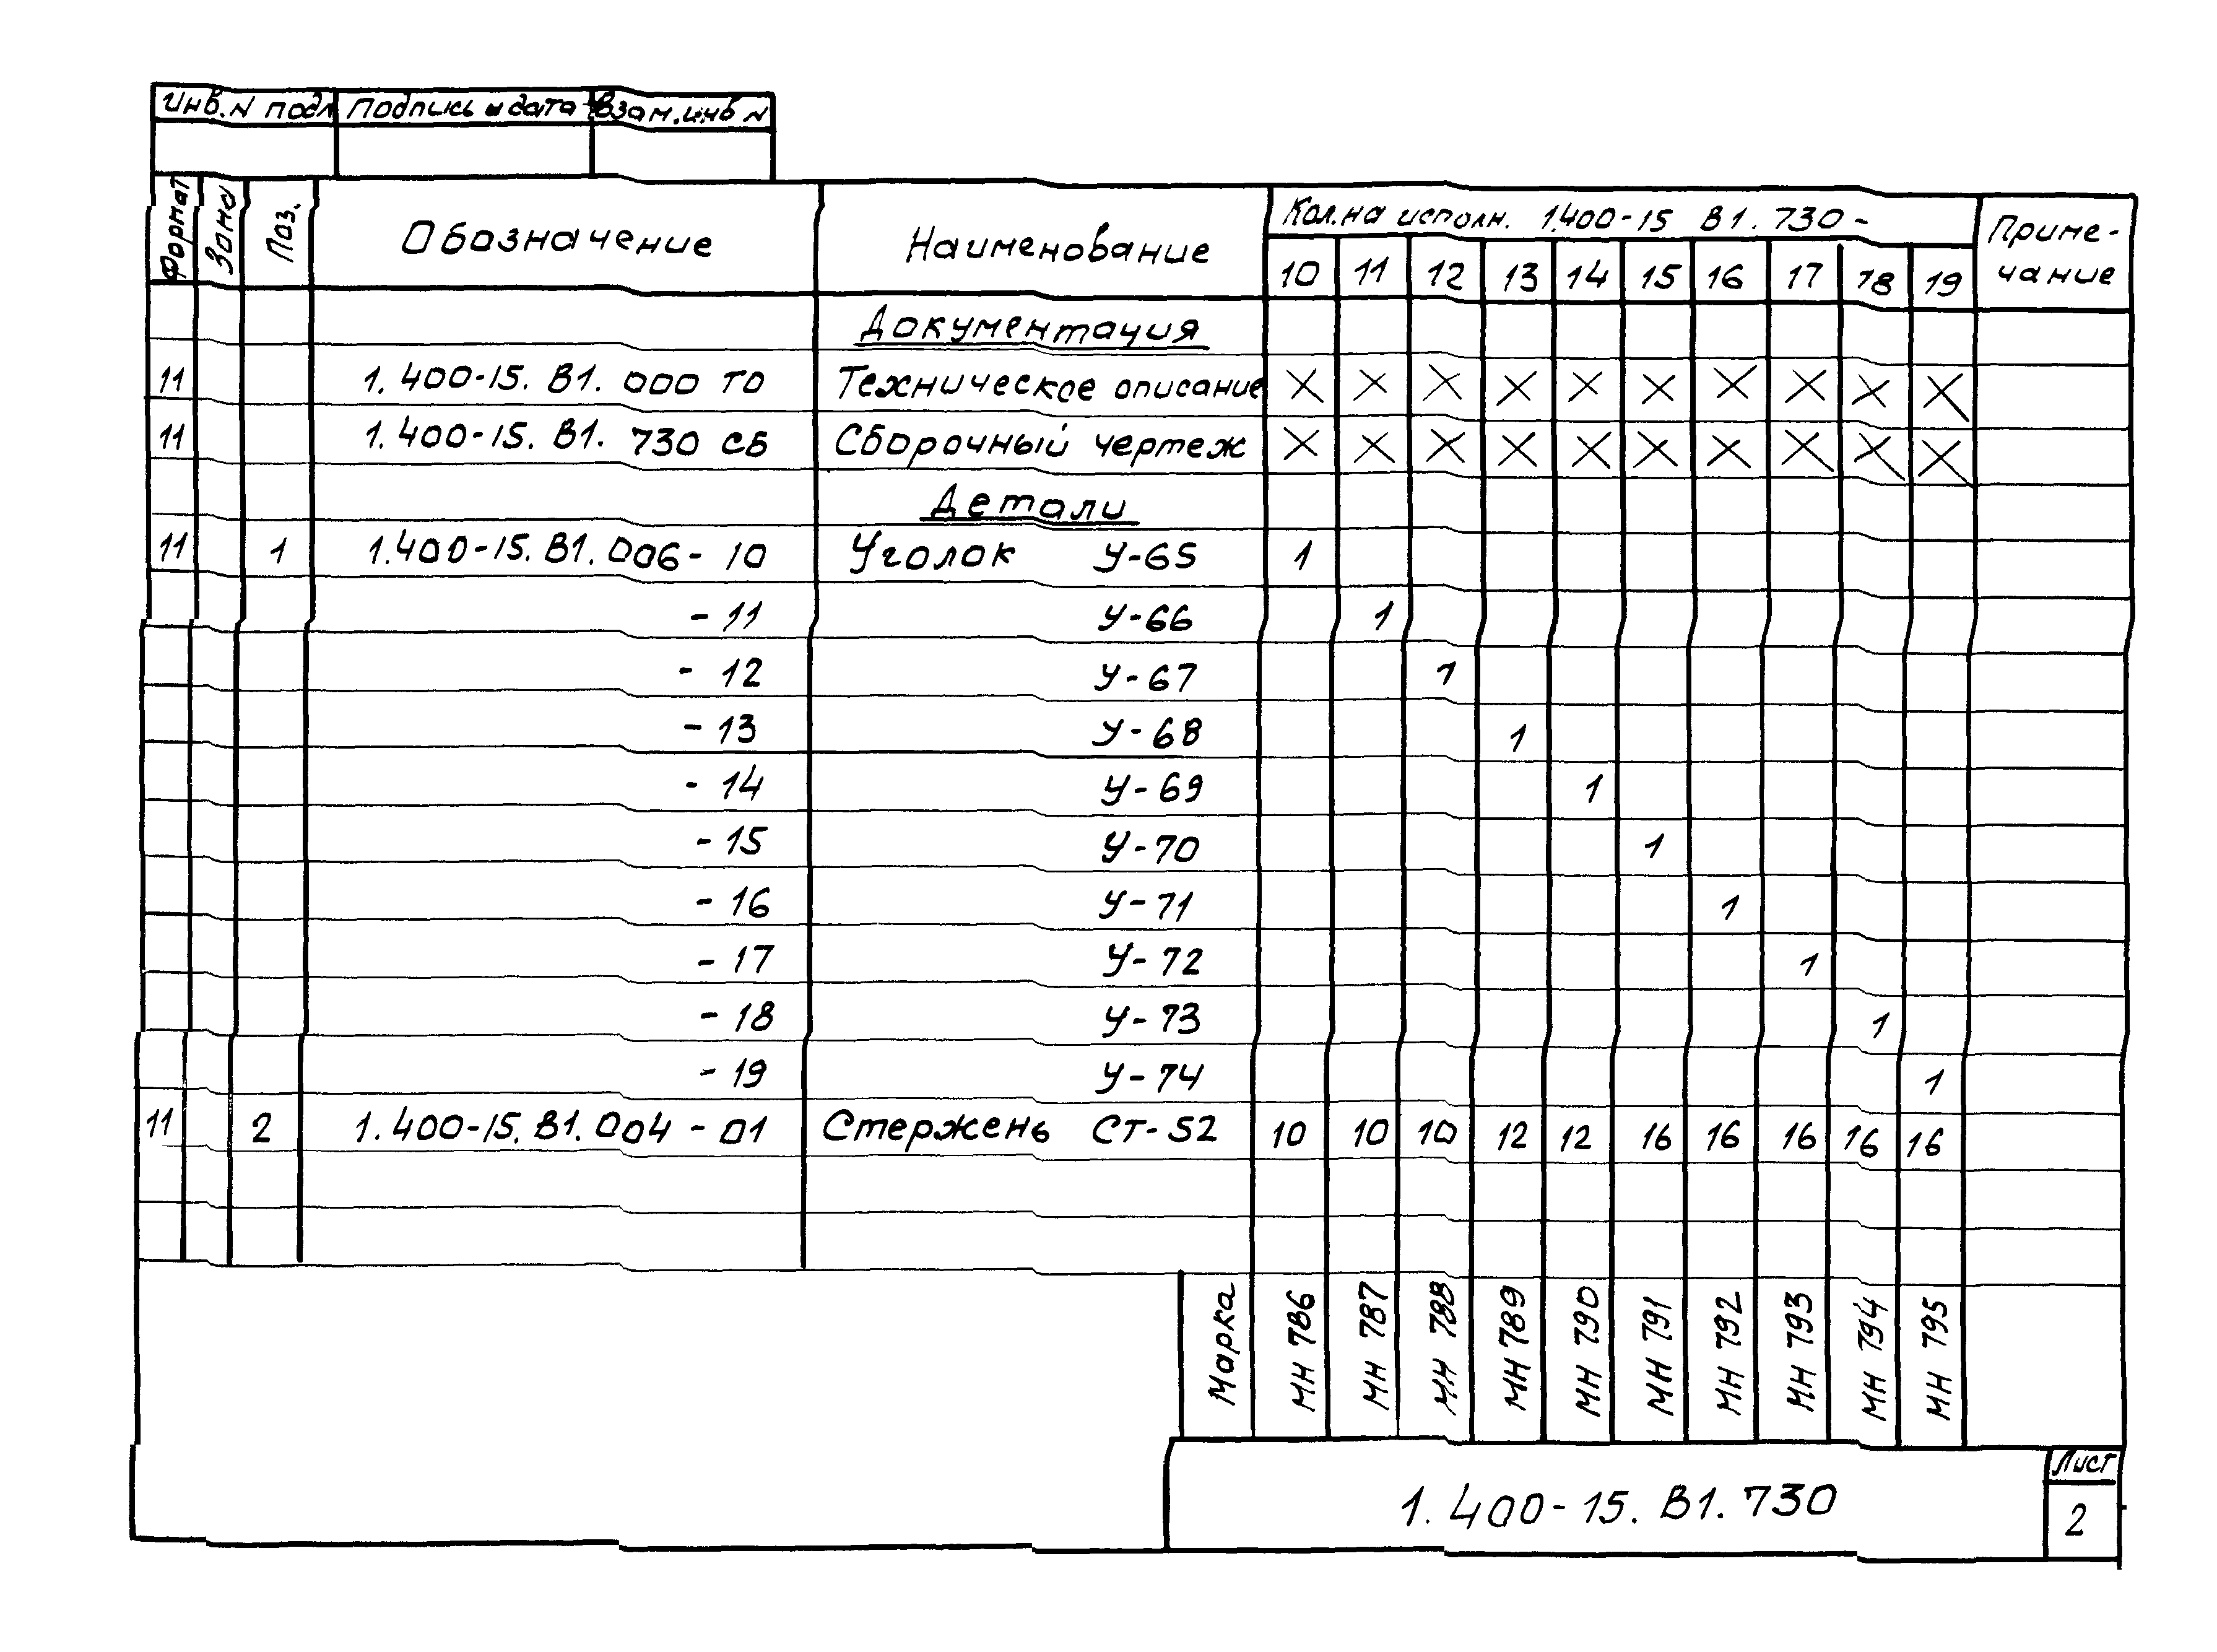 Инв. N подл Подпись и дата Взам. инв N
Формат Зона Поз. Обозначение Наименование Кол. на исполн. 1.400-15 В1. 730 - Приме-
10 11 12 13 14 15 16 17 18 19 чание
Документация
11 1. 400-15. В1. 000 ТО Техническое описание X X X X X X X X X X
11 1. 400-15. В1. 730 СБ Сборочный чертеж X X X X X X X X X X
Детали
11 1 1.400-15. В1. 006 - 10 Уголок У-65 1
- 11 У-66 1
- 12 У-67 1
- 13 У-68 1
- 14 У-69 1
- 15 У-70 1
- 16 У-71 1
- 17 У-72 1
- 18 У-73 1
- 19 У-74 1
11 2 1. 400-15. В1. 004 - 01 Стержень СТ-52 10 10 10 12 12 16 16 16 16 16
Марка МН 786 МН 787 МН 788 МН 789 МН 790 МН 791 МН 792 МН 793 МН 794 МН 795
1. 400-15. В1. 730
Лист
2